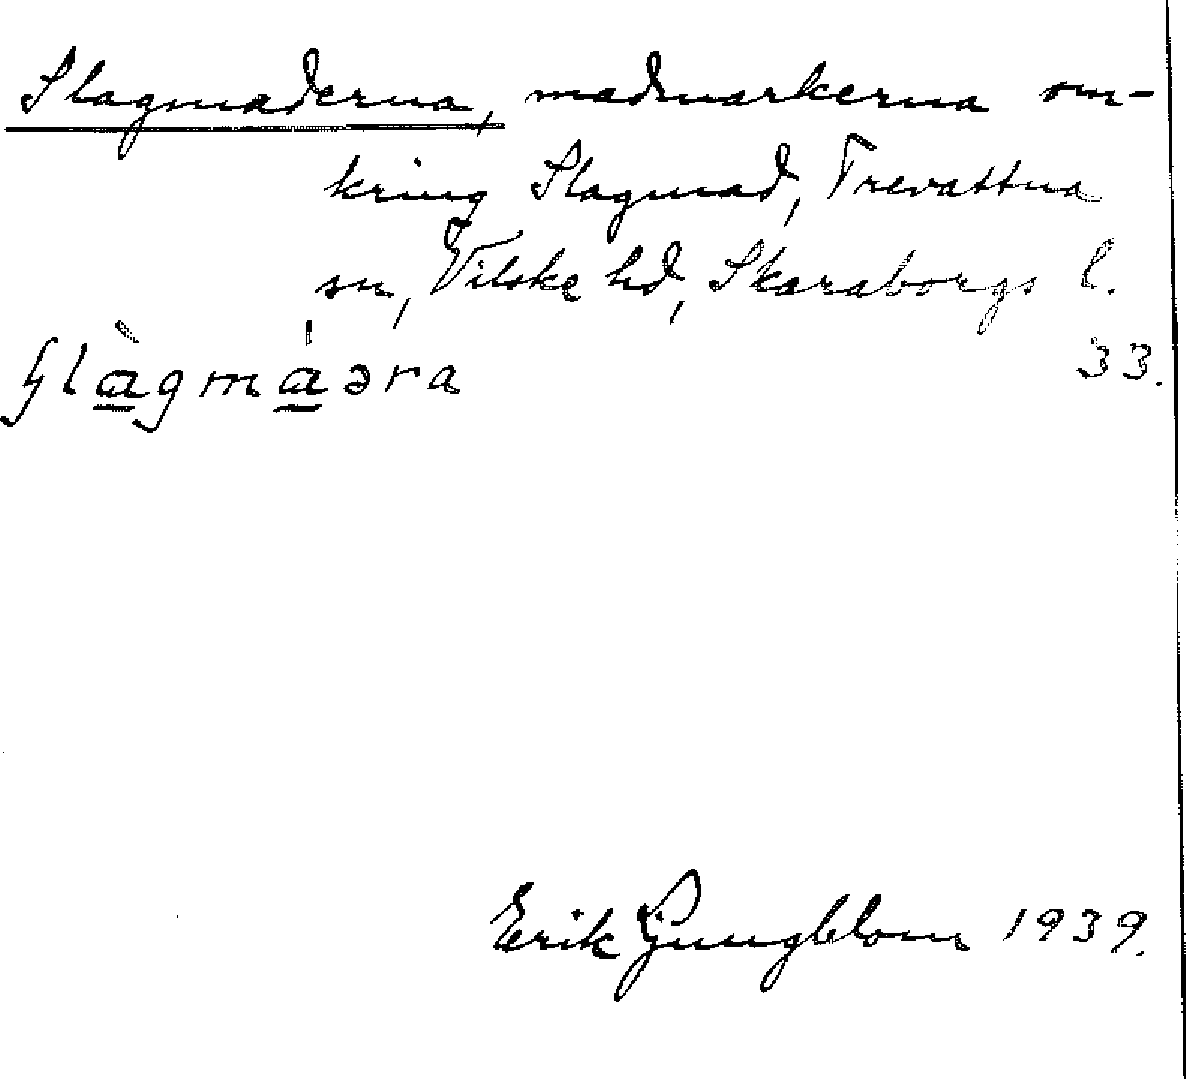 Slagmaderna, madmarkerna om-
kring Slagmad, Trevattna
sn, Vilske hd, Skaraborgs l.
33.
Erik Ljungblom 1939.